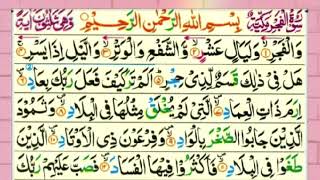 سُوۡرَةُ الۡفَجۡرِ مَكِّيَّةٌ بِسۡمِ اللّٰهِ الرَّحۡمٰنِ الرَّحِيۡمِ وَهِىَ ثَلٰثُوۡنَ اٰيَةً
وَالۡفَجۡرِ ۙ‏﴿۱﴾ وَلَيَالٍ عَشۡرٍ ۙ‏﴿۲﴾ وَّالشَّفۡعِ وَالۡوَتۡرِ ۙ‏﴿۳﴾ وَالَّيۡلِ اِذَا يَسۡرِ‌ۚ‏﴿۴﴾
هَلۡ فِىۡ ذٰلِكَ قَسَمٌ لِّذِىۡ حِجۡرٍؕ‏﴿۵﴾ اَلَمۡ تَرَ كَيۡفَ فَعَلَ رَبُّكَ بِعَادٍ ۙ‏﴿۶﴾
اِرَمَ ذَاتِ الۡعِمَادِ ۙ‏﴿۷﴾ الَّتِىۡ لَمۡ يُخۡلَقۡ مِثۡلُهَا فِى الۡبِلَادِ ۙ‏﴿۸﴾ وَثَمُوۡدَ
الَّذِيۡنَ جَابُوا الصَّخۡرَ بِالۡوَادِ ۙ‏﴿۹﴾ وَفِرۡعَوۡنَ ذِى الۡاَوۡتَادِ ۙ‏﴿۱۰﴾ الَّذِيۡنَ
طَغَوۡا فِى الۡبِلَادِ ۙ‏﴿۱۱﴾ فَاَكۡثَرُوۡا فِيۡهَا الۡفَسَادَ ۙ‏﴿۱۲﴾ فَصَبَّ عَلَيۡهِمۡ رَبُّكَ